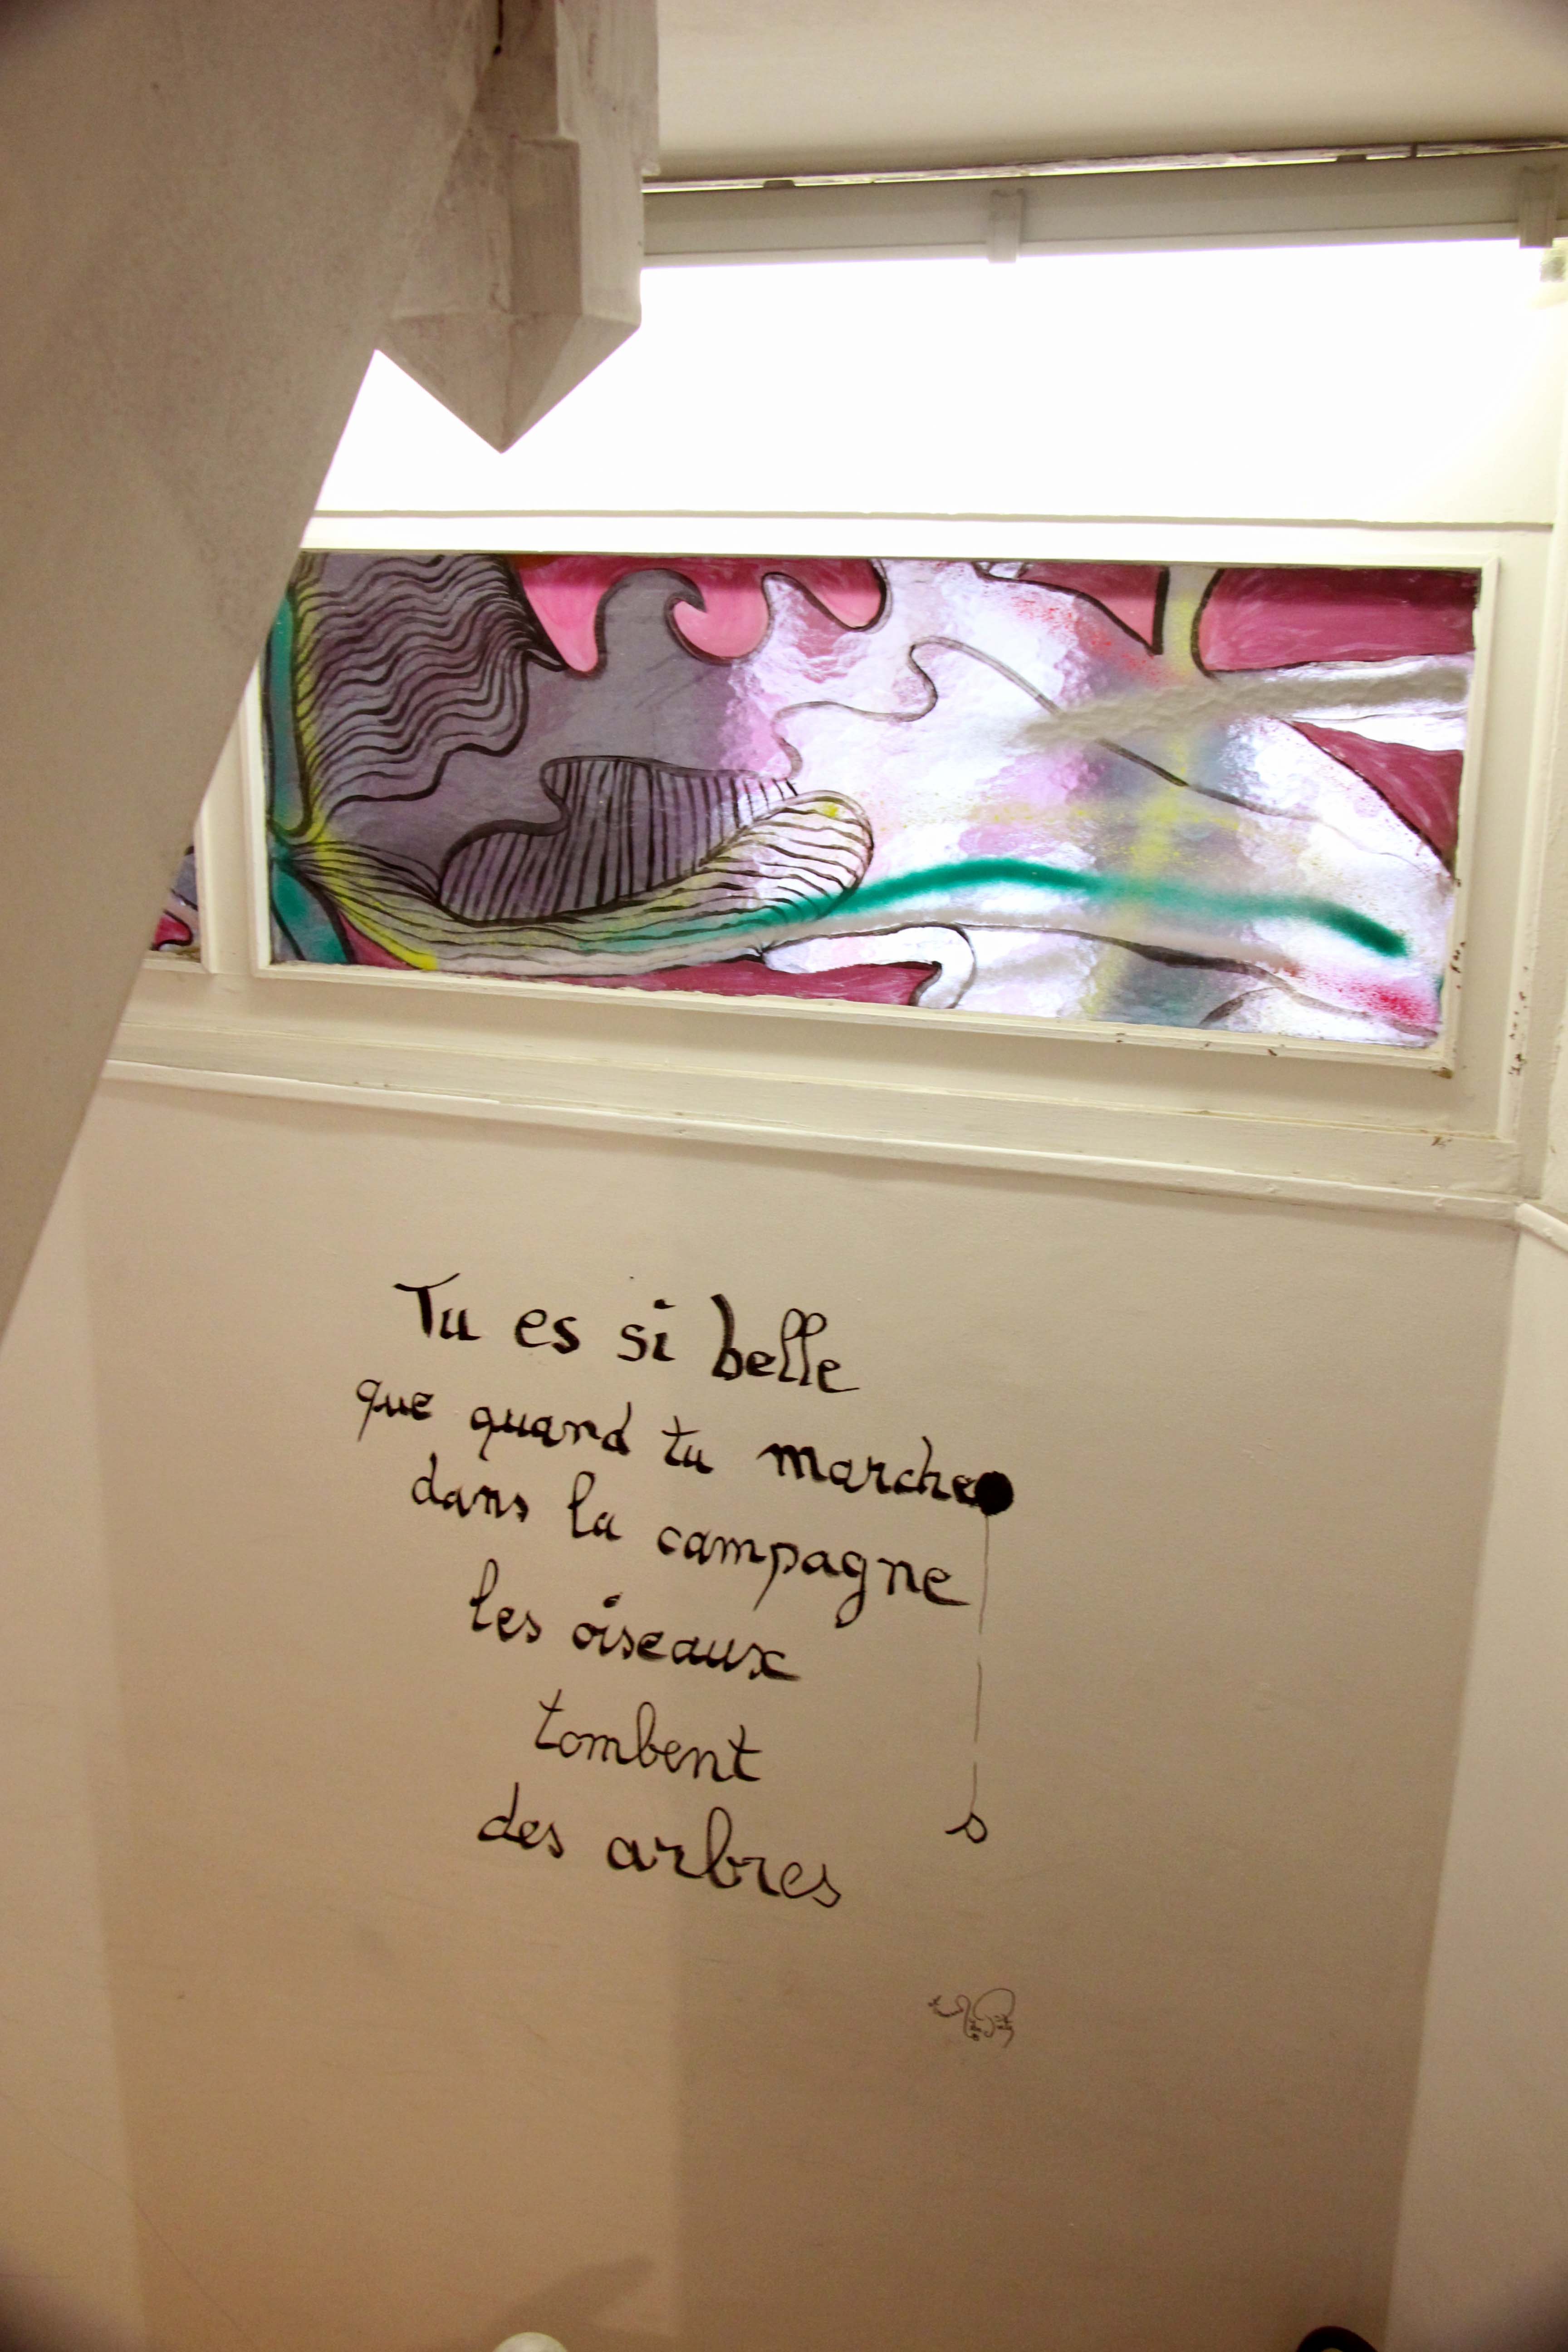 Tu es si belle
que quand tu marche
dans la campagne
les oiseaux
tombent
des arbres
s